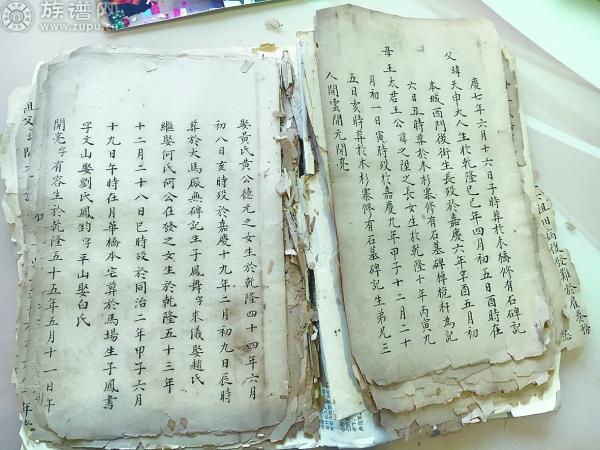 族谱网
www.zupu.cn
慶七年六月十六日子時葬於木橋修有石碑記
父諱天申大人生於乾隆己巳年四月初五日酉時在
本城西門後街生長歿於嘉慶六年辛酉五月初
六日丑時葬於木杉寨修有石墓碑桅杆為記
母王太君王公諱之陞之長女生於乾隆十年丙寅九
月初一日寅時歿於嘉慶九年甲子十二月二十
五日亥時葬於木杉寨修有石墓碑記生弟兄三
人開雲開元開亮
娶黃氏黃公德元之女生於乾隆四十四年六月
初八日亥時歿於嘉慶十九年二月初九日辰時
葬於大馬廠無碑記生子鳳舞字來儀娶趙氏
繼娶何氏何公在發之女生於乾隆五十三年
十二月二十八日巳時歿於同治二年甲子六月
十九日午時在月華橋本宅葬於馬場生子鳳書
字文山娶劉氏鳳鈞字平山娶白氏
開亮字有容生於乾隆五十五年五月十一日午